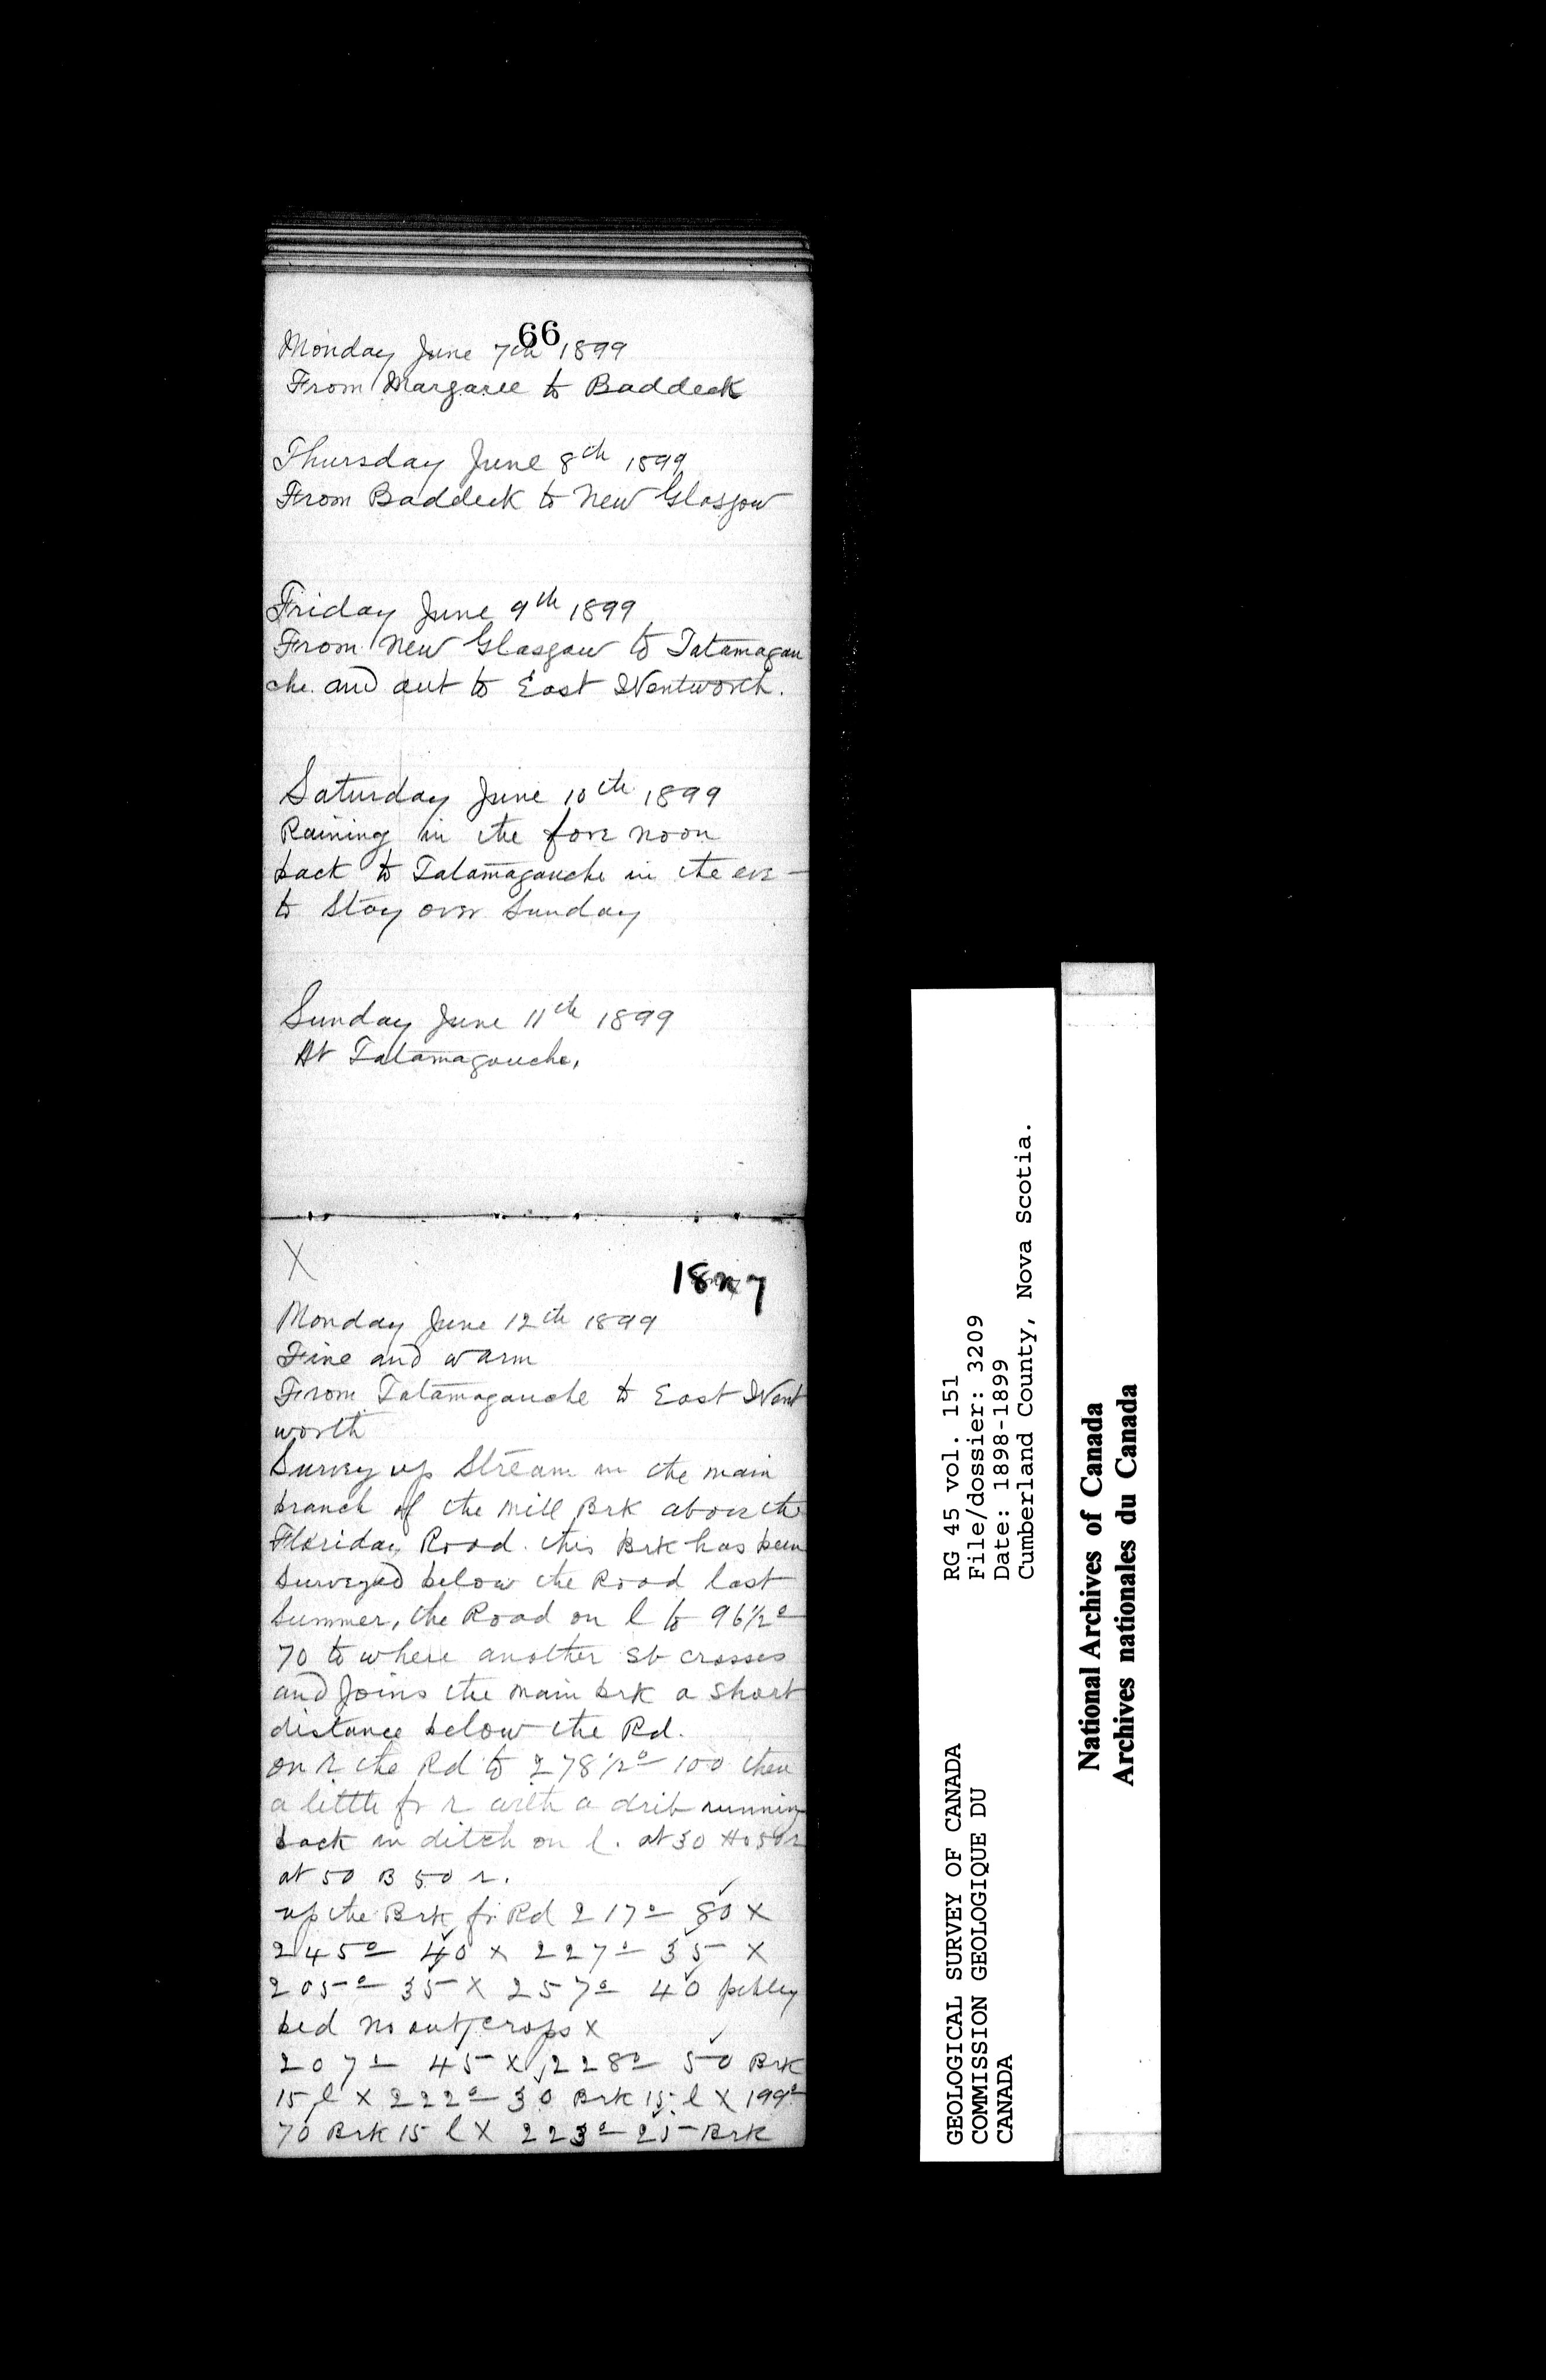 66
Monday June 7th 1899
From Margaree to Baddeck
Thursday June 8th 1899
From Baddeck to New Glasgow
Friday June 9th 1899
From New Glasgow to Tatamagou
che. and out to East Wentworth.
Saturday June 10th 1899
Raining in the fore noon
back to Tatamagouche in the eve -
to stay over Sunday
Sunday June 11th 1899
At Tatamagouche,
X
Monday June 12th 1899
Fine and warm
From Tatamagouche to East Went
worth
Survey up Stream in the main
branch of the Mill Brk above the
Floriday Road. this Brk has been
Surveyed below the Road last
Summer, the Road on l to 96 1/2°
70 to where another Sb crosses
and Joins the main brk a short
distance below the Rd.
on r the Rd to 278 1/2° 100 then
a little fr r with a drib running
back in ditch on l. at 30 Ho 50 r
at 50 B 50 r.
up the Brk fr Rd 217° 80 X
245° 40 X 227° 35 X
205° 35 X 257° 40 pebbley
bed no outcrops X
207° 45 X 228° 50 Brk
15 l X 222° 30 Brk 15 l X 199°
70 Brk 15 l X 223° 25 Brk
GEOLOGICAL SURVEY OF CANADA
COMMISSION GEOLOGIQUE DU
CANADA
RG 45 vol. 151
File/dossier: 3209
Date: 1898-1899
Cumberland County, Nova Scotia.
National Archives of Canada
Archives nationales du Canada